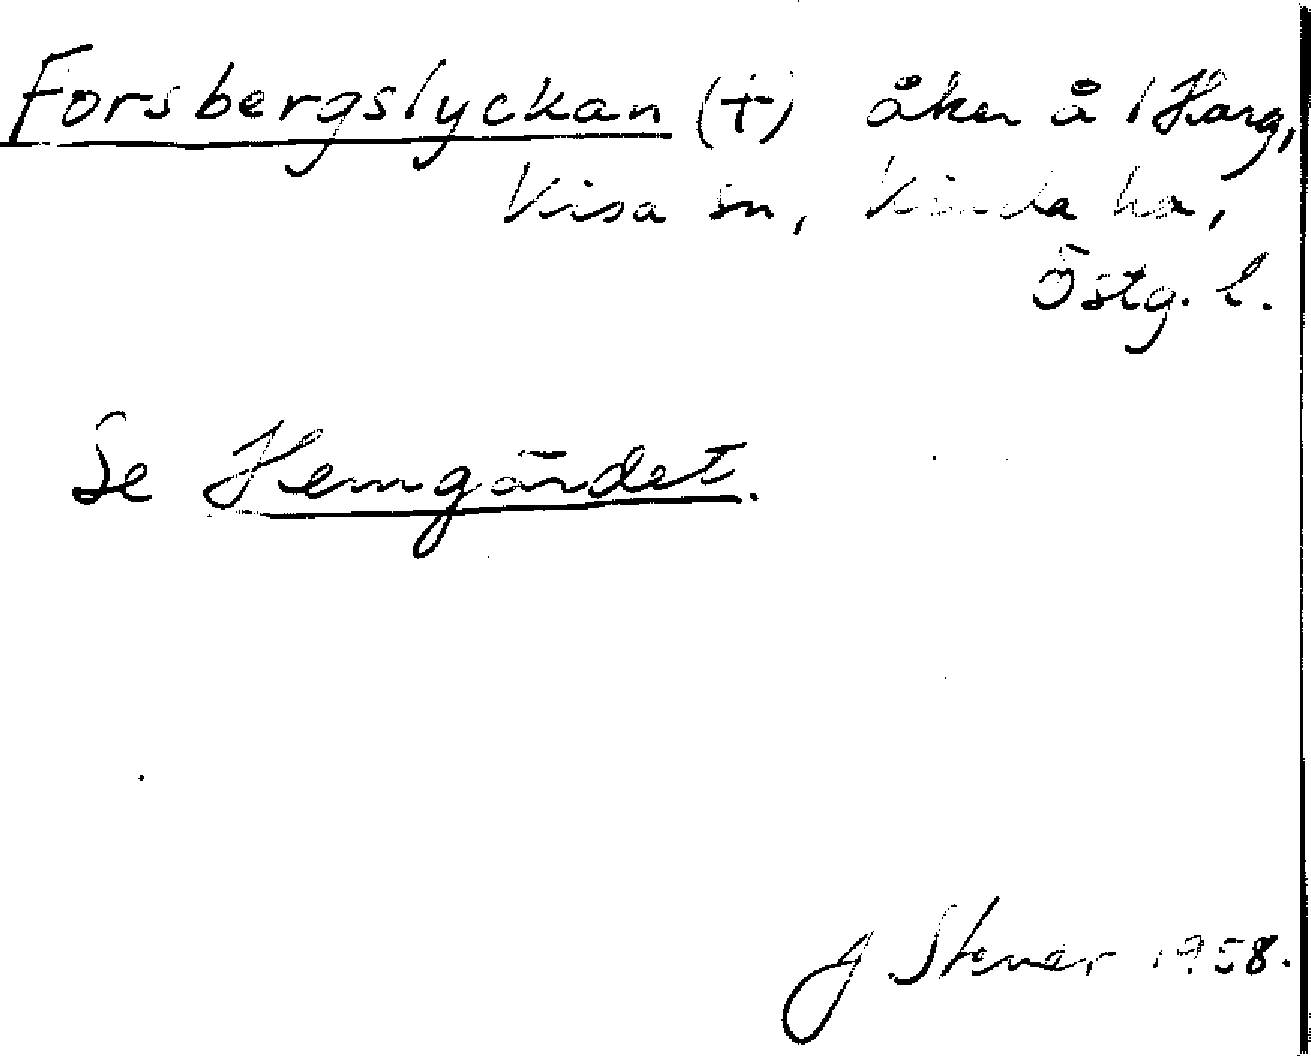 Forsbergslyckan (+) åker å 1 Harg,
Kisa sn, Kinda hd,
Östg. l.
Se Hemgärdet.
1958.